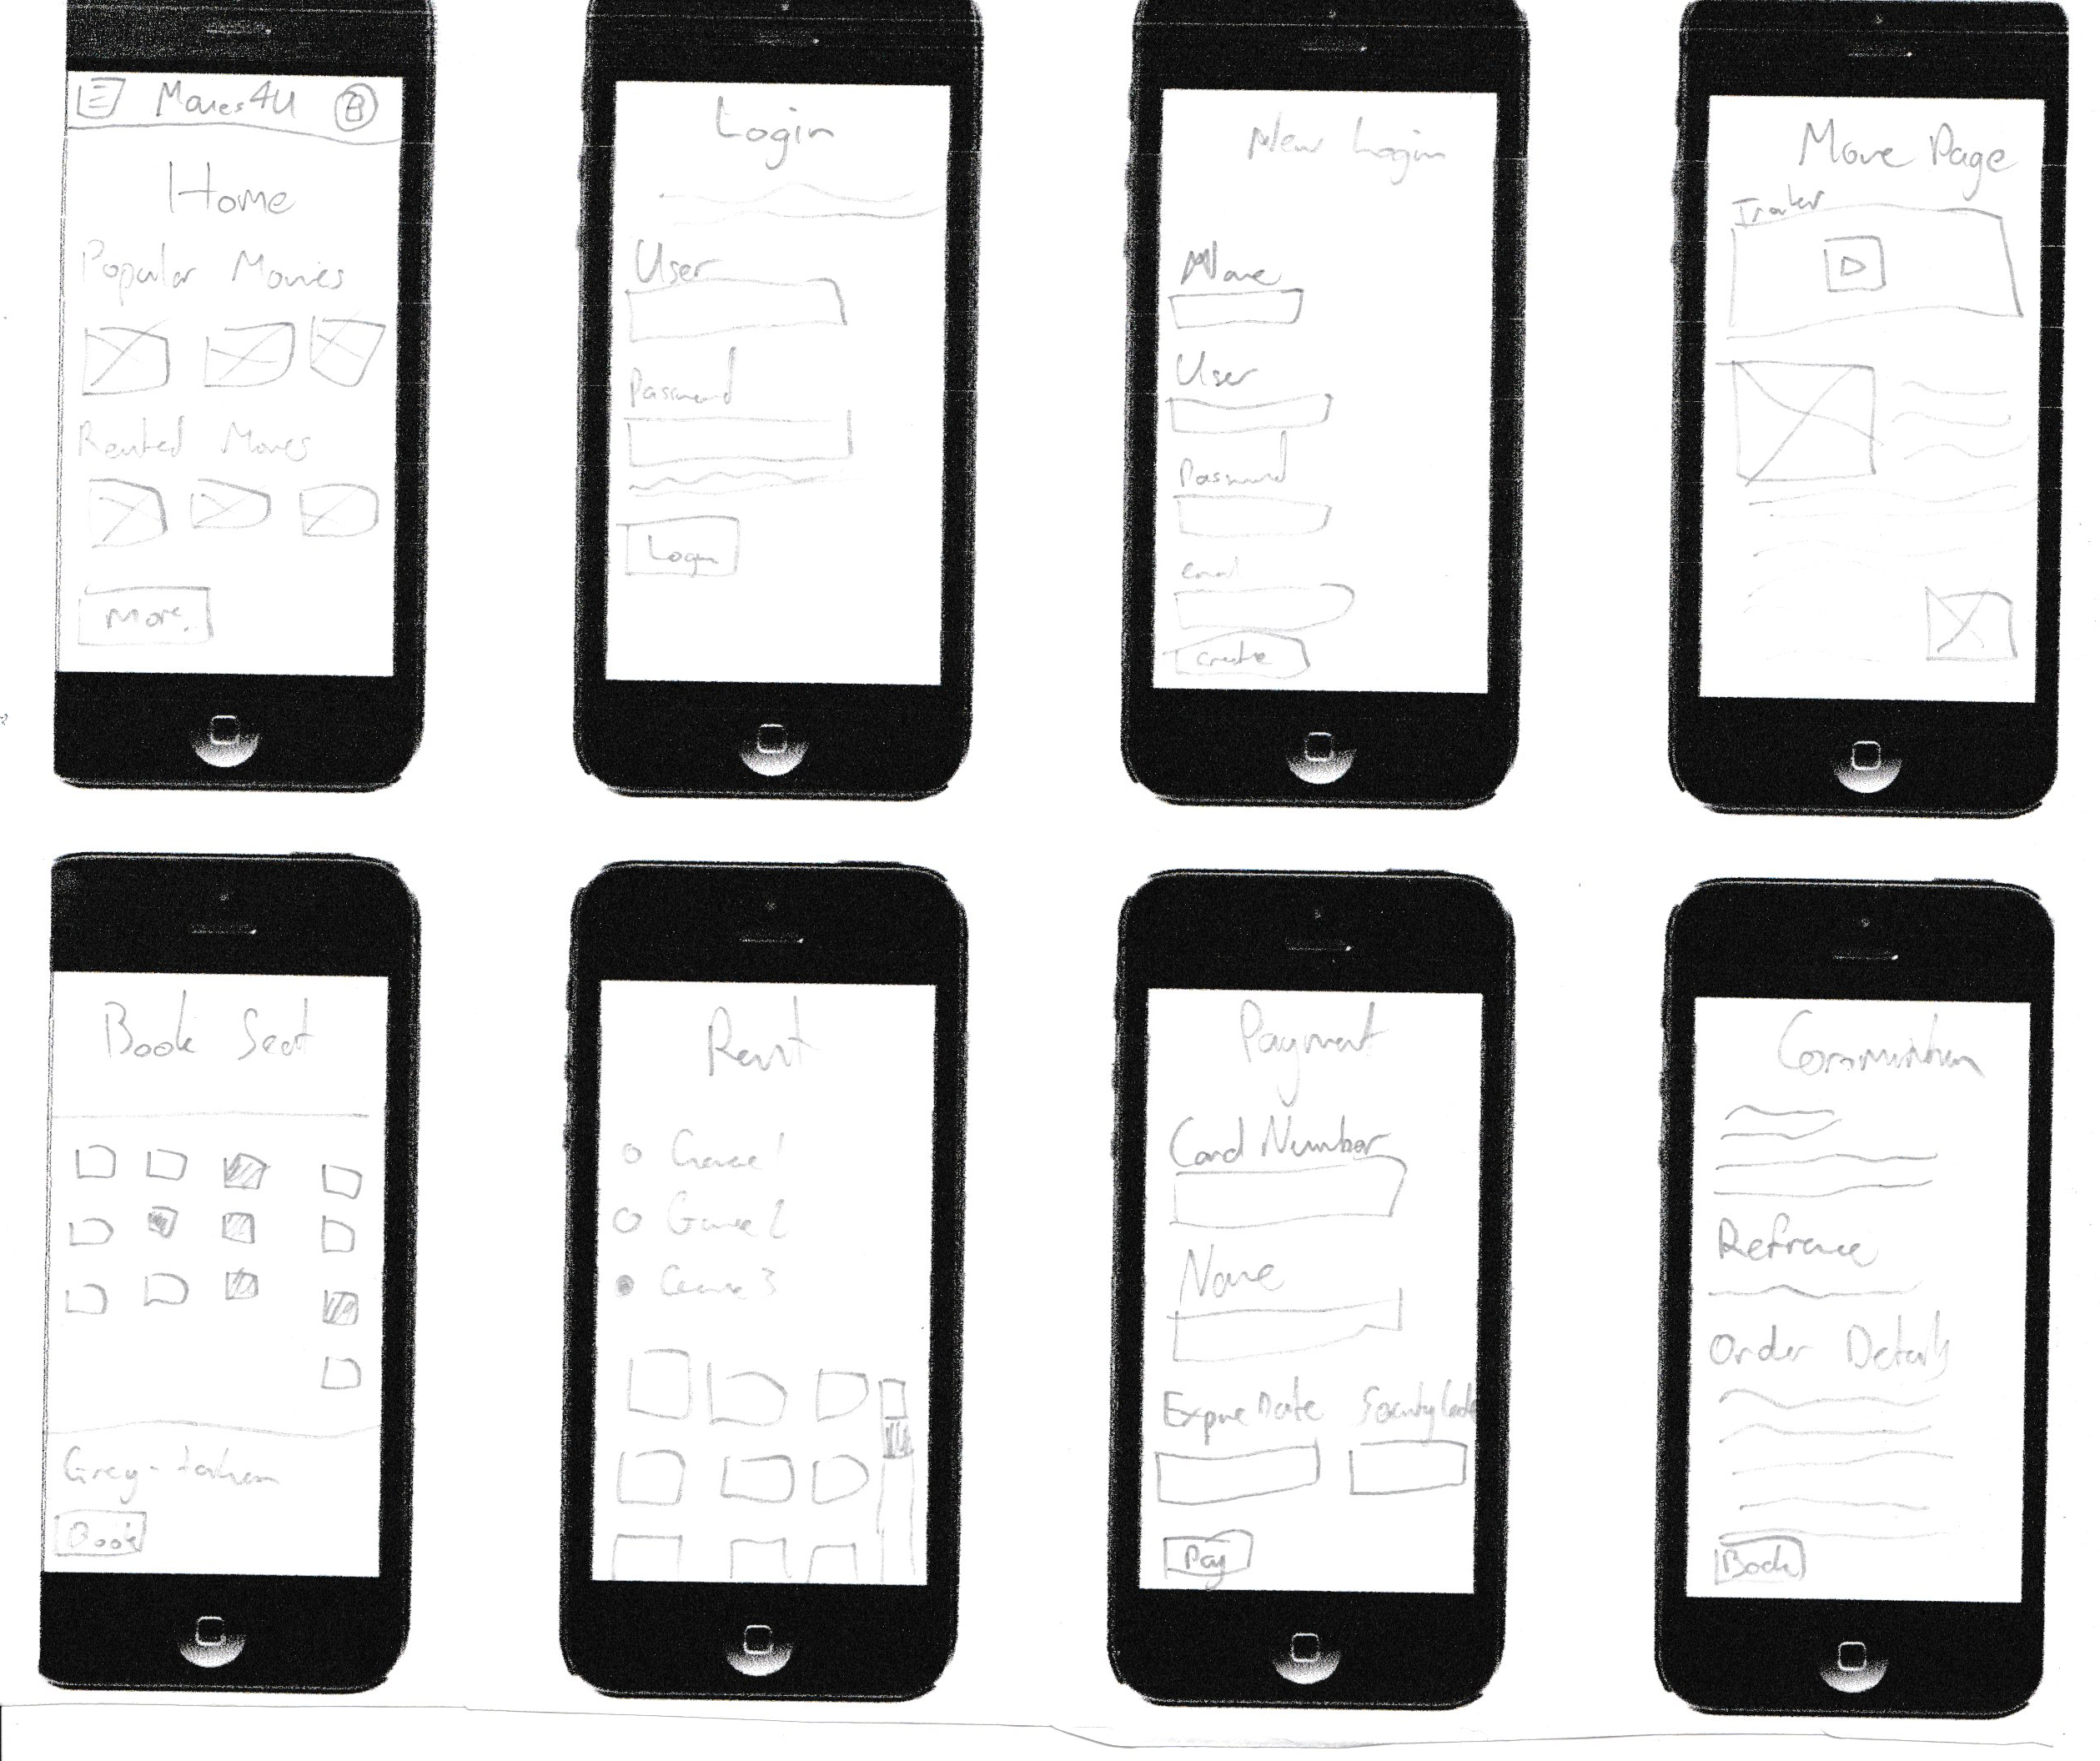 Movies4U
Home
Popular Movies
Rented Movies
More
Login
User
Password
Login
New Login
Name
User
Password
email
create
Movie Page
Trailer
Book Seat
Grey - taken
Book
Rent
Genre 1
Genre 2
Genre 3
Payment
Card Number
Name
Expire Date Security Code
Pay
Refrence
Order Details
Book